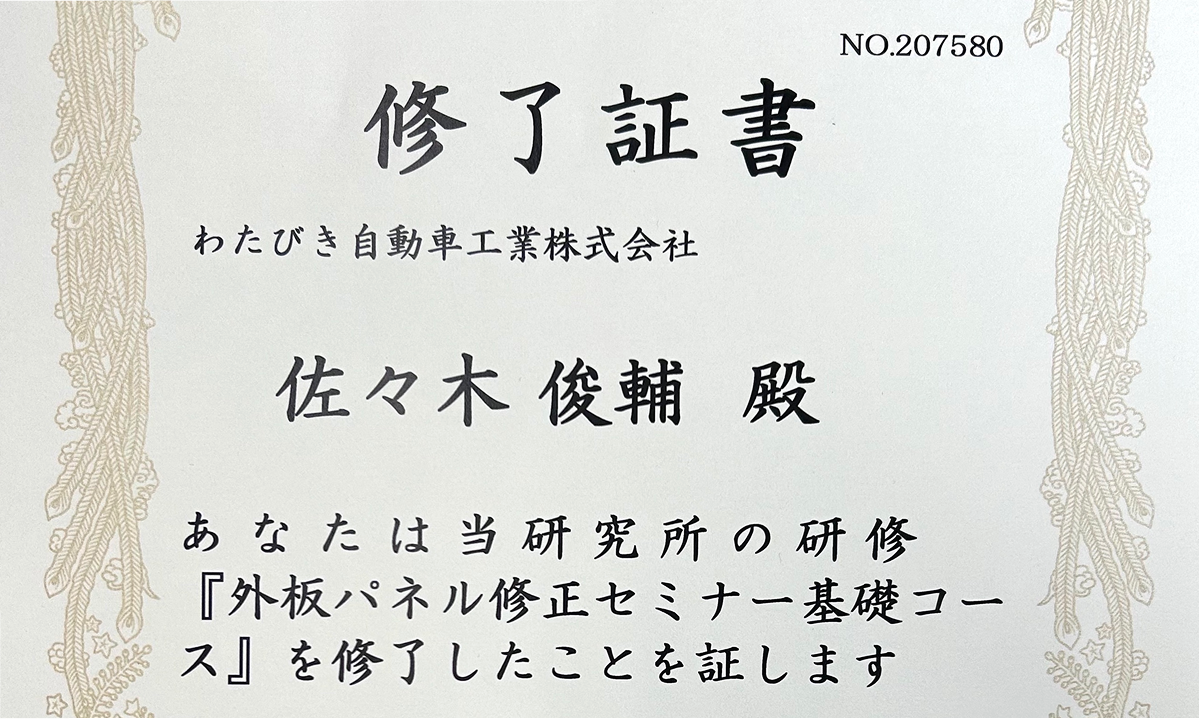 NO.207580
修了証書
わたびき自動車工業株式会社
佐々木 俊輔 殿
あなたは当研究所の研修
『外板パネル修正セミナー基礎コー
ス』を修了したことを証します